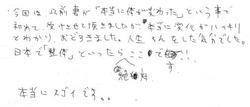 今回は以前妻が「本当に体が変わった」という事で
初めて、受けさせて頂きましたが本当に変化がハッキリ
とわかり、おどろきました。人生 そんをした気分でした。
日本で「整体」といったらここです!!
絶対
本当にスゴイです。